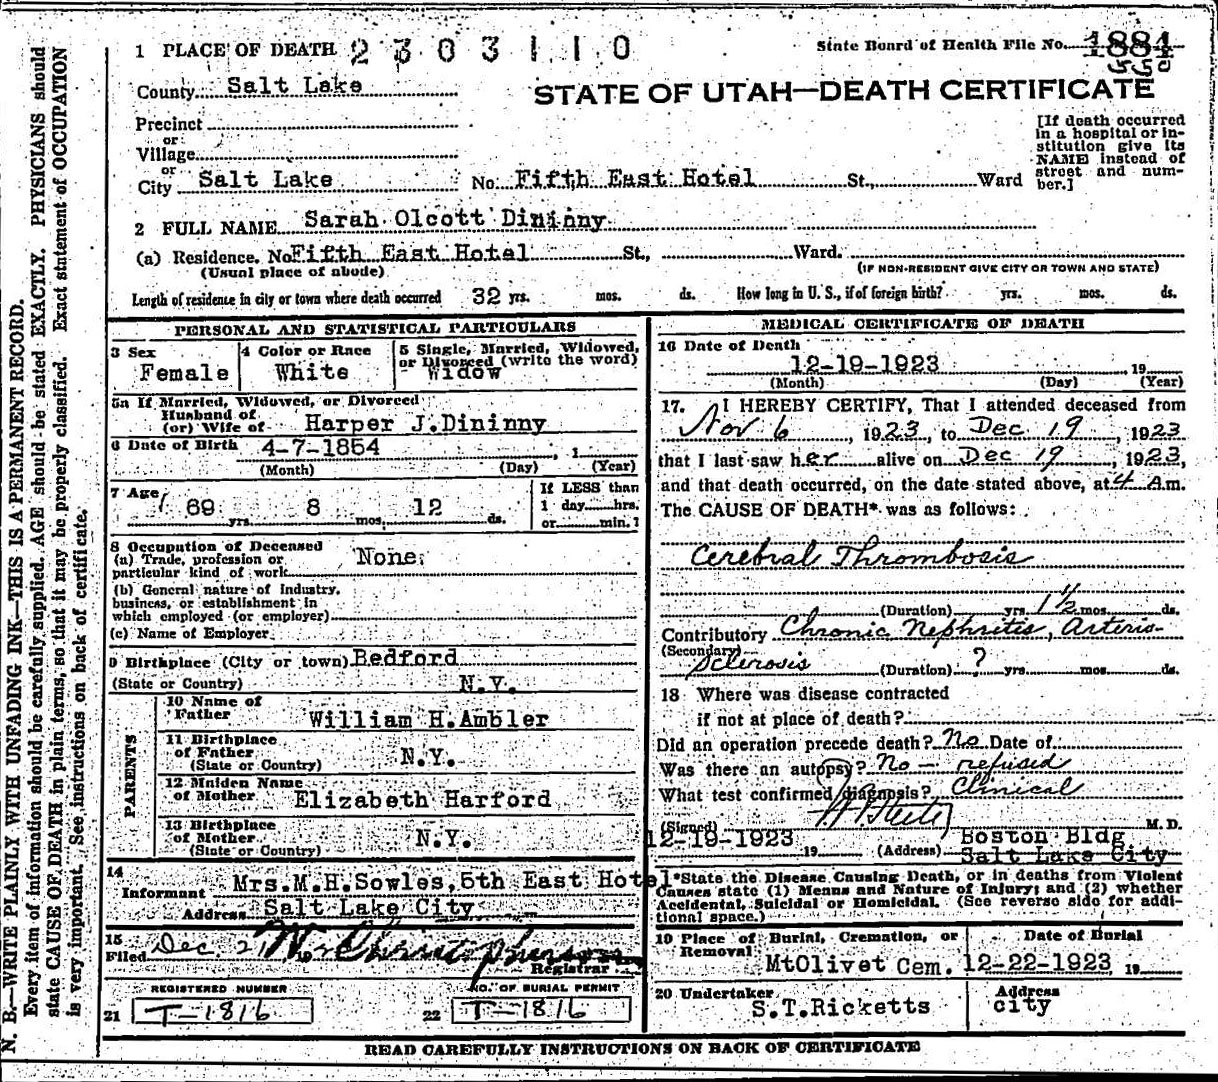 1 PLACE OF DEATH 2303110
State Board of Health File No. 1884
550
County Salt Lake
STATE OF UTAH—DEATH CERTIFICATE
Precinct
or
Village
or
City Salt Lake No. Fifth East Hotel St., Ward
[If death occurred in a hospital or institution give its NAME instead of street and number.]
2 FULL NAME Sarah Olcott Dininny
(a) Residence. No Fifth East Hotel St., Ward.
(Usual place of abode) (IF NON-RESIDENT GIVE CITY OR TOWN AND STATE)
Length of residence in city or town where death occurred 32 yrs. mos. ds. How long in U. S., if of foreign birth? yrs. mos. ds.
PERSONAL AND STATISTICAL PARTICULARS
3 Sex
Female
4 Color or Race
White
5 Single, Married, Widowed,
or Divorced (write the word)
Widow
5a If Married, Widowed, or Divorced
Husband of
(or) Wife of Harper J.Dininny
6 Date of Birth 4-7-1854 , 1
(Month) (Day) (Year)
7 Age 69 yrs. 8 mos. 12 ds.
If LESS than
1 day hrs.
or min.?
8 Occupation of Deceased
(a) Trade, profession or
particular kind of work None.
(b) General nature of Industry,
business, or establishment in
which employed (or employer)
(c) Name of Employer
9 Birthplace (City or town) Bedford
(State or Country) N.Y.
PARENTS
10 Name of
Father William H.Ambler
11 Birthplace
of Father N.Y.
(State or Country)
12 Maiden Name
of Mother Elizabeth Harford
13 Birthplace
of Mother N.Y.
(State or Country)
14
Informant Mrs.M.H.Sowles,5th East Hotel
Address Salt Lake City
15
Filed Dec 21 19
Registrar
REGISTERED NUMBER
21 T-1816
NO. OF BURIAL PERMIT
22 T-1816
MEDICAL CERTIFICATE OF DEATH
16 Date of Death
12-19-1923 19
(Month) (Day) (Year)
17. I HEREBY CERTIFY, That I attended deceased from
Nov 6, 1923, to Dec 19, 1923
that I last saw her alive on Dec 19, 1923,
and that death occurred, on the date stated above, at 4 A.m.
The CAUSE OF DEATH* was as follows:
Cerebral Thrombosis
(Duration) yrs. 1 1/2 mos. ds.
Contributory Chronic Nephritis, Arterio-
(Secondary)
Sclerosis (Duration) ? yrs. mos. ds.
18 Where was disease contracted
if not at place of death?
Did an operation precede death? No Date of
Was there an autopsy? No — refused
What test confirmed diagnosis? Clinical
(Signed) M.D.
12-19-1923 19 (Address) Boston Bldg
Salt Lake City
*State the Disease Causing Death, or in deaths from Violent
Causes state (1) Means and Nature of Injury; and (2) whether
Accidental, Suicidal or Homicidal. (See reverse side for additional space.)
19 Place of Burial, Cremation, or
Removal
MtOlivet Cem.
Date of Burial
12-22-1923 19
20 Undertaker
S.T.Ricketts
Address
city
READ CAREFULLY INSTRUCTIONS ON BACK OF CERTIFICATE
N. B.—WRITE PLAINLY WITH UNFADING INK—THIS IS A PERMANENT RECORD.
Every item of information should be carefully supplied. AGE should be stated EXACTLY. PHYSICIANS should
state CAUSE OF DEATH in plain terms, so that it may be properly classified. Exact statement of OCCUPATION
is very important. See instructions on back of certificate.